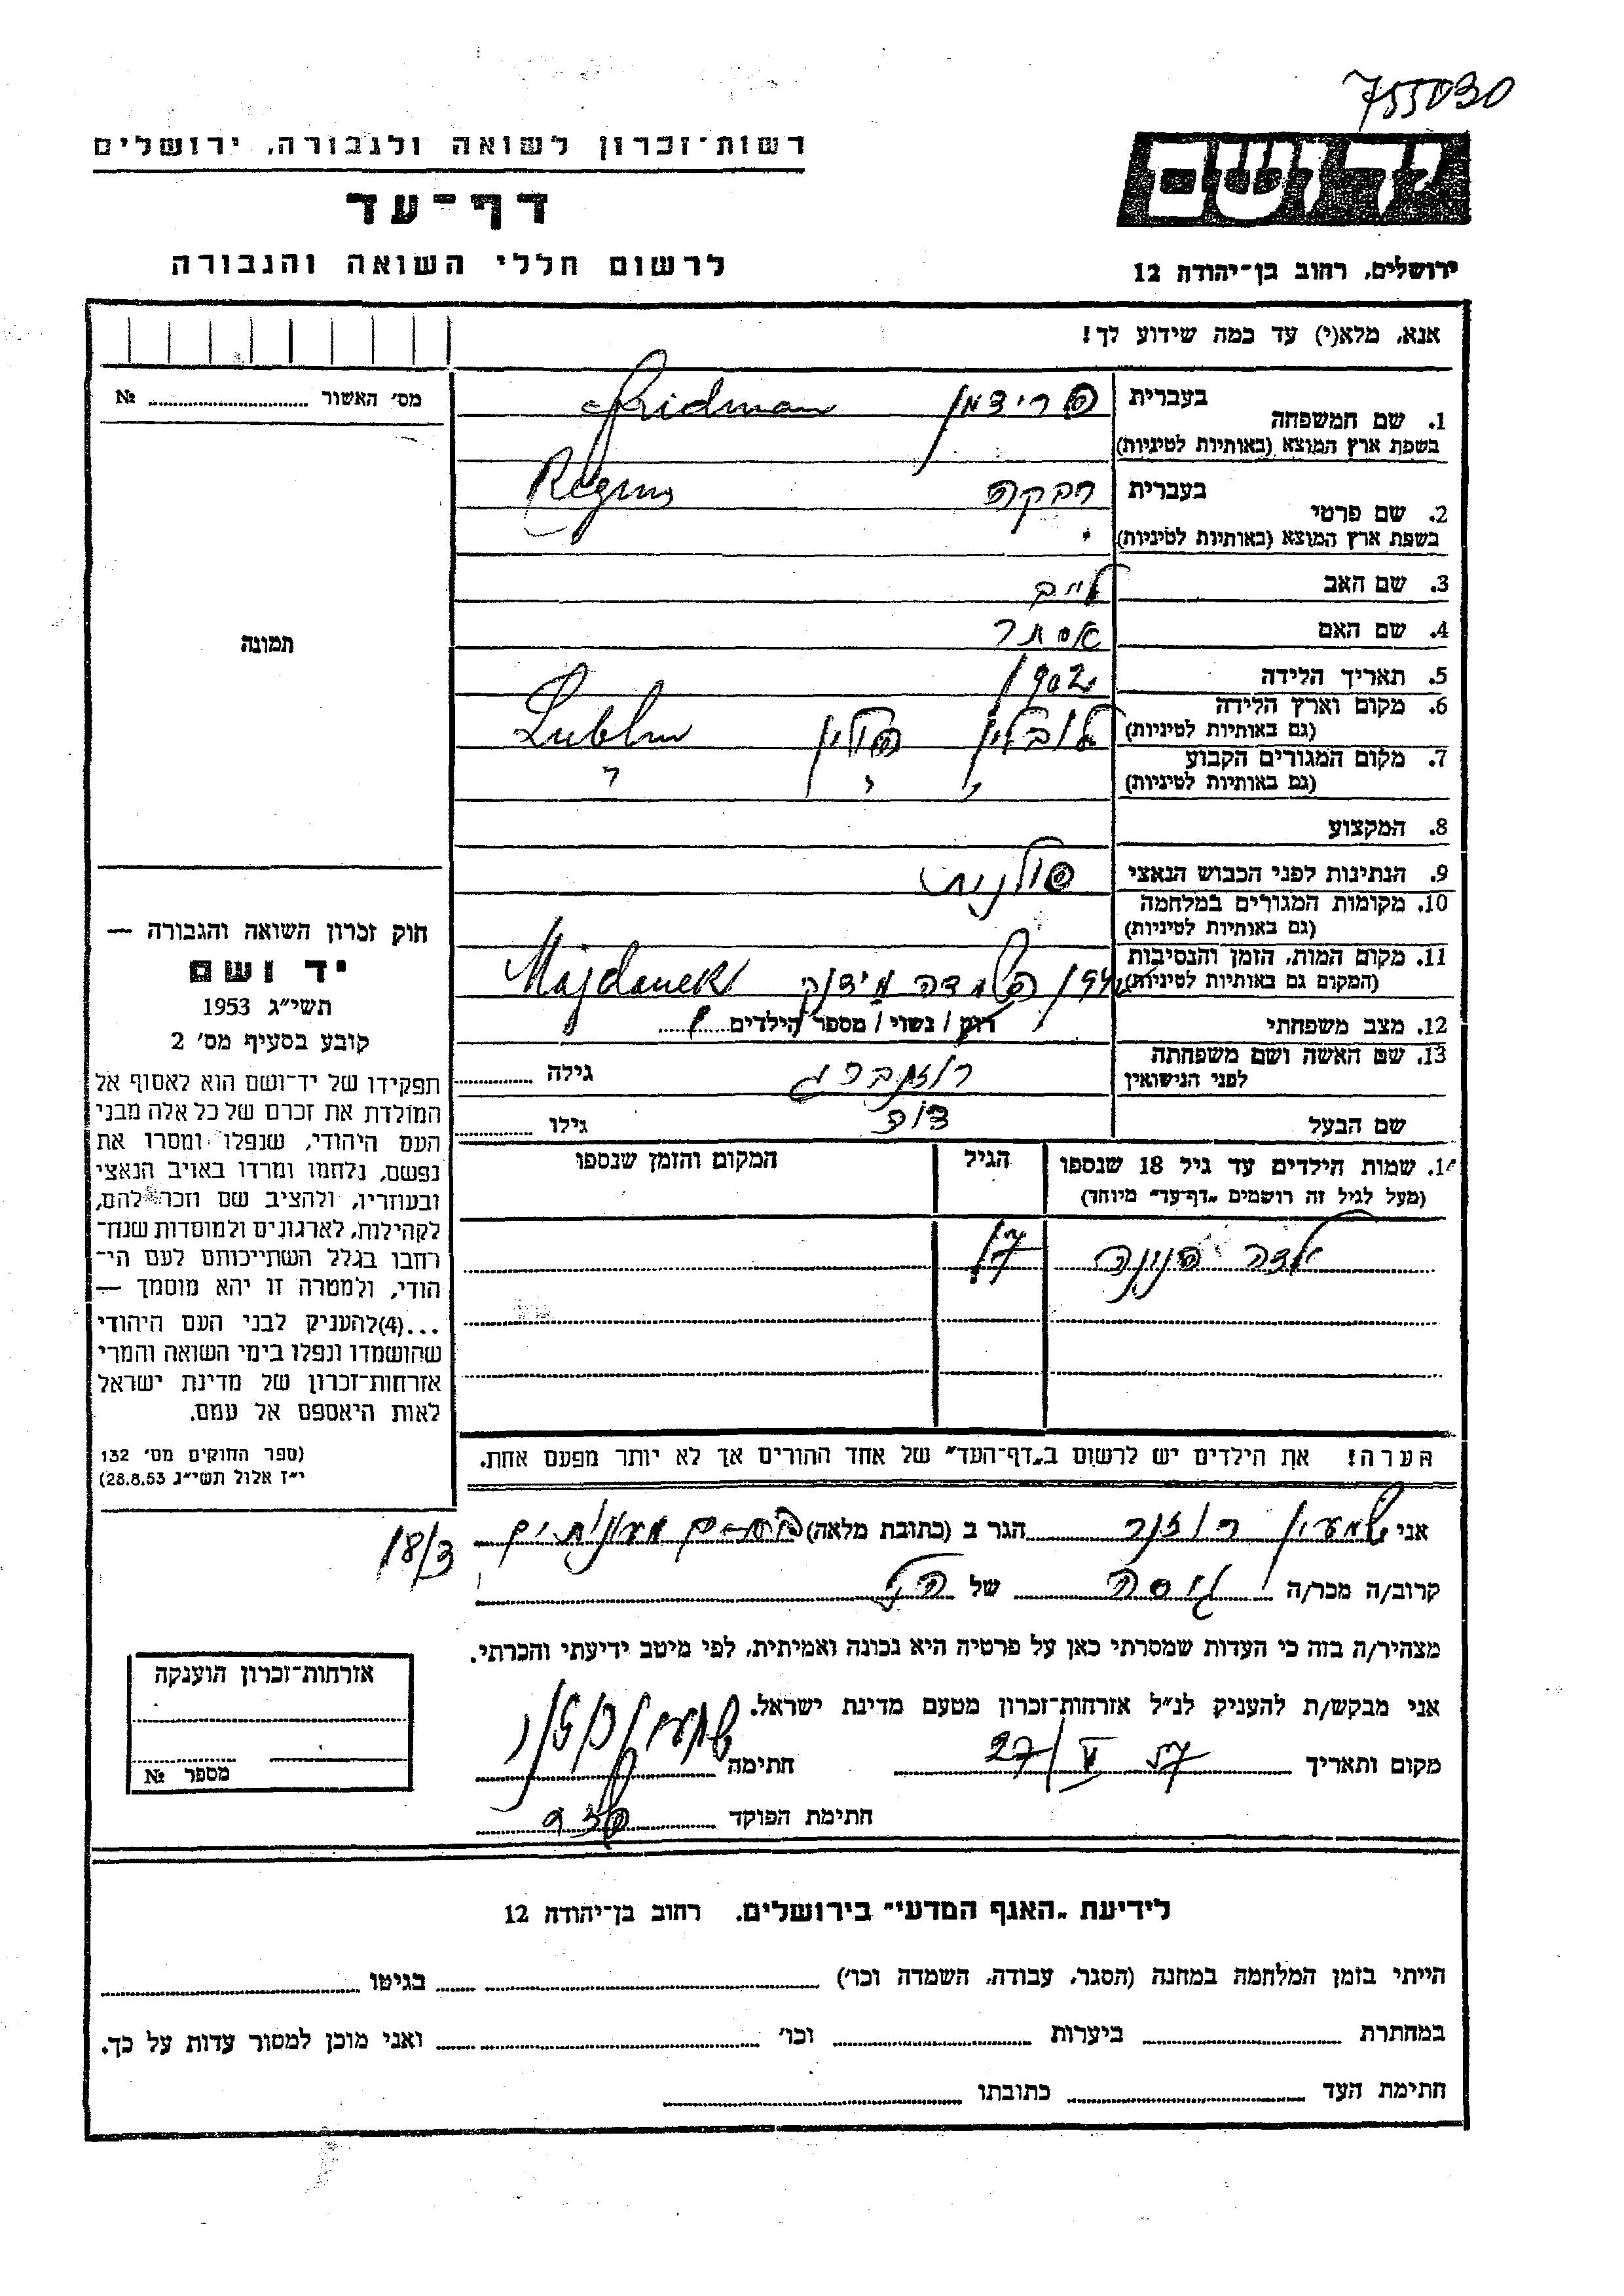 755030
רשות־זכרון לשואה ולגבורה, ירושלים
יד ושם
דף־עד
לרשום חללי השואה והגבורה
ירושלים, רחוב בן־יהודה 12
אנא, מלא(י) עד כמה שידוע לך!
מס' האשור № ....................
בעברית
1. שם המשפחה
בשפת ארץ המוצא (באותיות לטיניות)
פרידמן Fridman
בעברית
2. שם פרטי
בשפת ארץ המוצא (באותיות לטיניות)
רבקה
3. שם האב לייב
4. שם האם אסתר
5. תאריך הלידה 1902
6. מקום וארץ הלידה
(גם באותיות לטיניות)
לובלין פולין Lublin
7. מקום המגורים הקבוע
(גם באותיות לטיניות)
8. המקצוע
9. הנתינות לפני הכבוש הנאצי פולנית
10. מקומות המגורים במלחמה
(גם באותיות לטיניות)
11. מקום המות, הזמן והנסיבות
(המקום גם באותיות לטיניות)
השמדה מידנק Majdanek
12. מצב משפחתי רוק / נשוי / מספר הילדים
13. שם האשה ושם משפחתה
לפני הנישואין
רוזנברג גילה
שם הבעל דוד גילו
14. שמות הילדים עד גיל 18 שנספו
(מעל לגיל זה רושמים „דף־עד" מיוחד)
הגיל
המקום והזמן שנספו
17
הערה! את הילדים יש לרשום ב„דף־העד" של אחד ההורים אך לא יותר מפעם אחת.
תמונה
חוק זכרון השואה והגבורה —
יד ושם
תשי"ג 1953
קובע בסעיף מס' 2
תפקידו של יד־ושם הוא לאסוף אל
המולדת את זכרם של כל אלה מבני
העם היהודי, שנפלו ומסרו את
נפשם, נלחמו ומרדו באויב הנאצי
ובעוזריו, ולהציב שם וזכר להם,
לקהילות, לארגונים ולמוסדות שנח־
רחבו בגלל השתייכותם לעם הי־
הודי, ולמטרה זו יהא מוסמך —
...(4) להעניק לבני העם היהודי
שהושמדו ונפלו בימי השואה והמרי
אזרחות־זכרון של מדינת ישראל
לאות היאספם אל עמם.
(ספר החוקים מס' 132
י"ז אלול תשי"ג 28.8.53)
אני שמעון רוזנר הגר ב (כתובת מלאה)
18/3
קרוב/ה מכר/ה גיסה של הנ"ל
מצהיר/ה בזה כי העדות שמסרתי כאן על פרטיה היא נכונה ואמיתית, לפי מיטב ידיעתי והכרתי.
אני מבקש/ת להעניק לנ"ל אזרחות־זכרון מטעם מדינת ישראל.
מקום ותאריך 27/V 57 חתימה
חתימת הפוקד
אזרחות־זכרון הוענקה
מספר №
לידיעת „האגף המדעי" בירושלים. רחוב בן־יהודה 12
הייתי בזמן המלחמה במחנה (הסגר, עבודה, השמדה וכו') בגיטו
במחתרת ביערות וכו' ואני מוכן למסור עדות על כך.
חתימת העד כתובתו